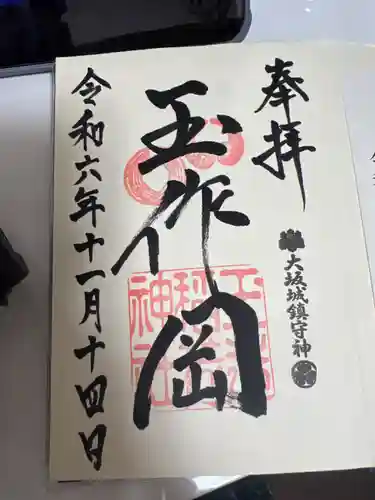 奉拝
大坂城鎮守神
玉作岡
玉造稲荷神社
令和六年十一月十四日